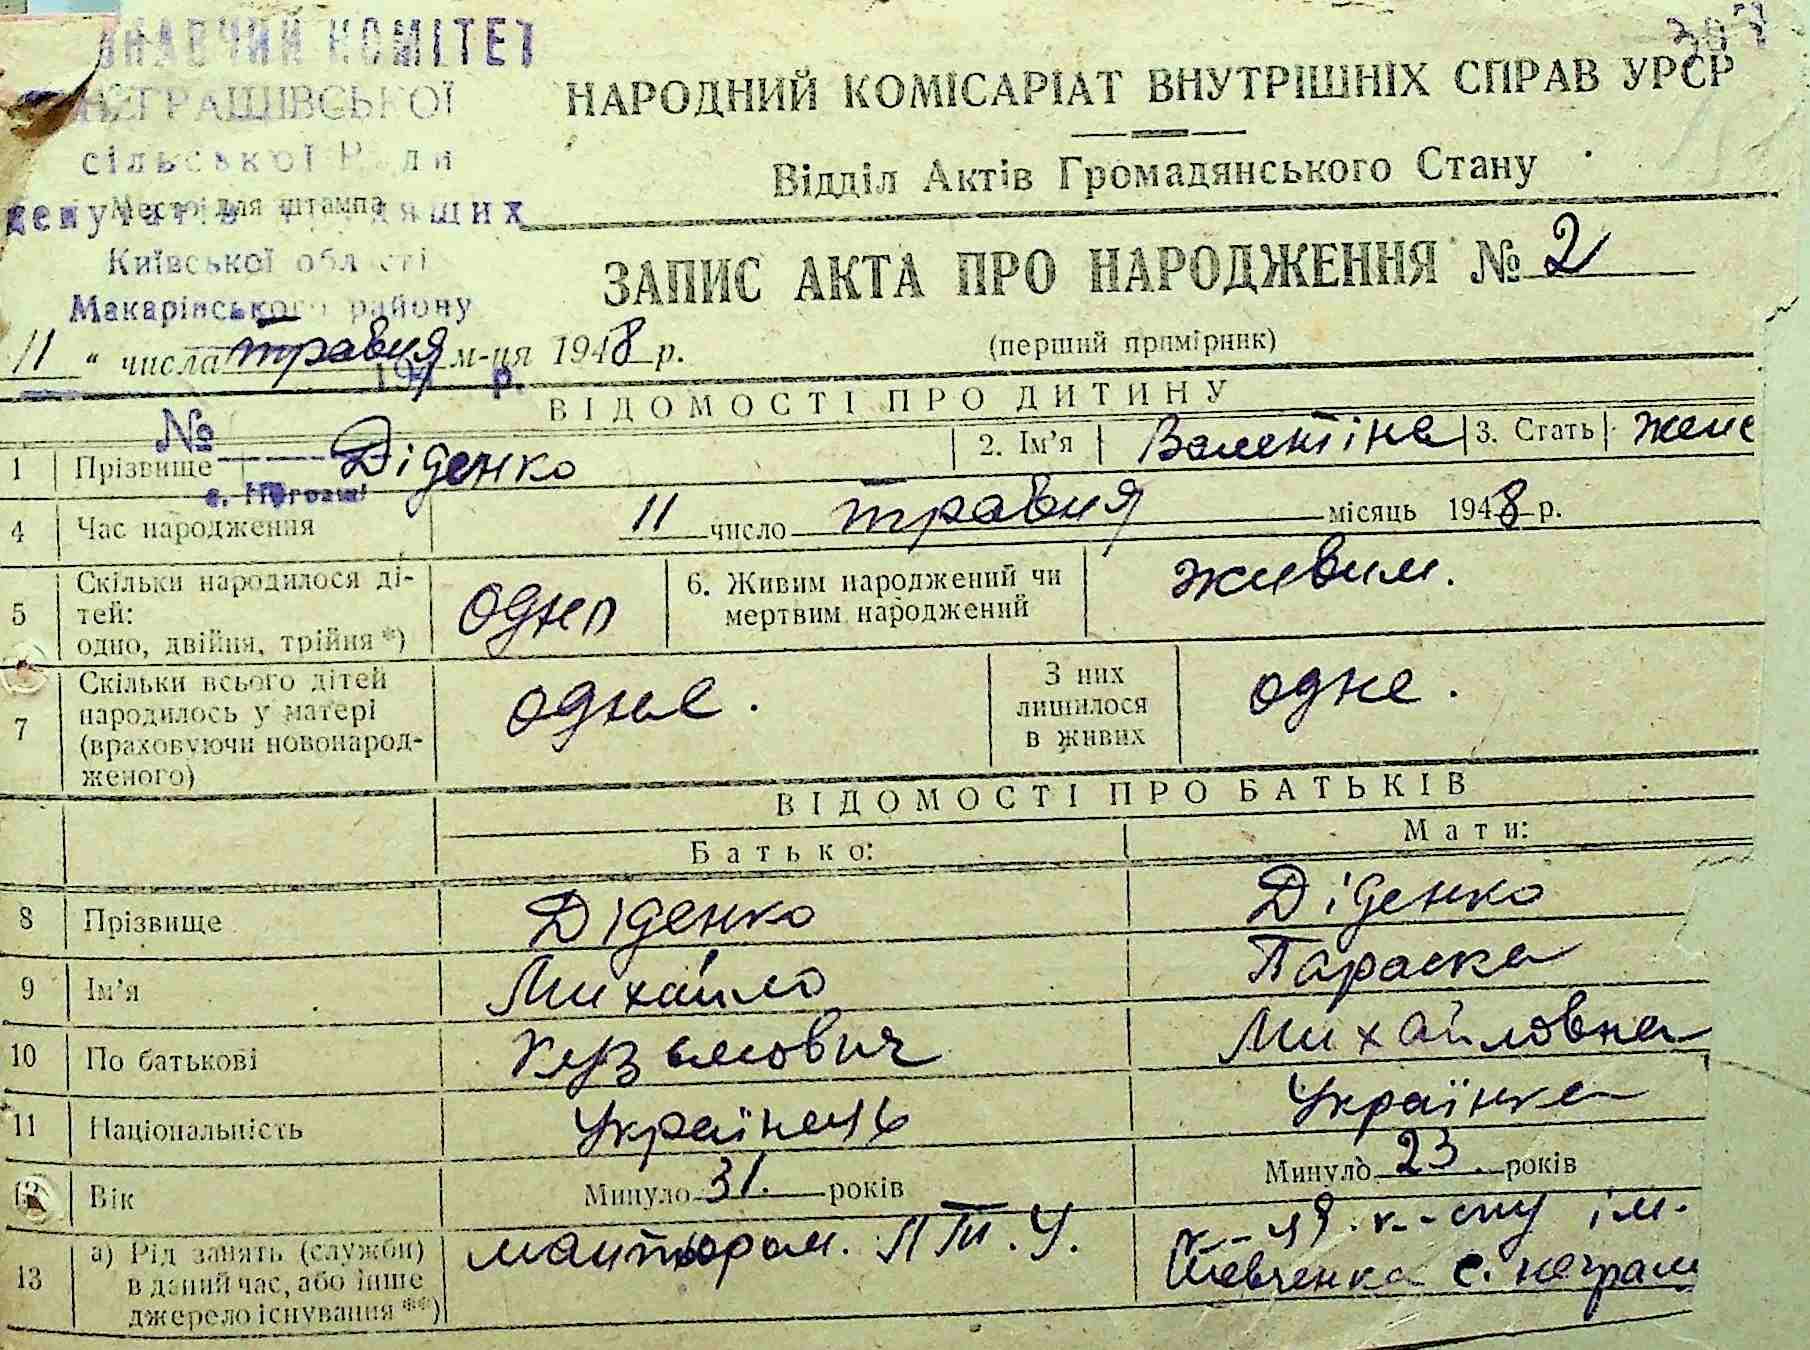 КОМІТЕТ
НЕГРАШІВСЬКОЇ
сільської Ради
Место для штампа
Київської області
Макарівського району
307
НАРОДНИЙ КОМІСАРІАТ ВНУТРІШНІХ СПРАВ УРСР
Відділ Актів Громадянського Стану
ЗАПИС АКТА ПРО НАРОДЖЕННЯ № 2
(перший примірник)
11 " числа травня м-ця 1948 р.
ВІДОМОСТІ ПРО ДИТИНУ
№
1 Прізвище Діденко 2. Ім'я Валентіна 3. Стать жене
4 Час народження 11 число травня місяць 1948 р.
5 Скільки народилося ді-
тей:
одно, двійня, трійня *) одне 6. Живим народжений чи
мертвим народжений живим.
7 Скільки всього дітей
народилось у матері
(враховуючи новонарод-
женого) одне. З них
лишилося
в живих одне.
ВІДОМОСТІ ПРО БАТЬКІВ
Батько: Мати:
8 Прізвище Діденко Діденко
9 Ім'я Михайло Параска
10 По батькові Кузьмович Михайловна
11 Національність Українець Українка
12 Вік Минуло 31. років Минуло 23. років
13 а) Рід занять (служби)
в даний час, або інше
джерело існування **) монтьором. Л Т. У. ім.
Шевченка с. неграш